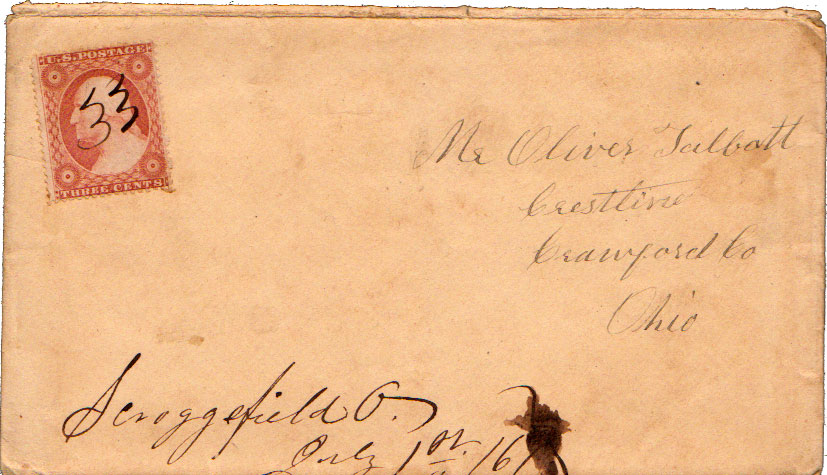 U.S. POSTAGE
33
THREE CENTS
Mr Oliver Talbott
Crestline
Crawford Co
Ohio
Scroggsfield O.
July 1st